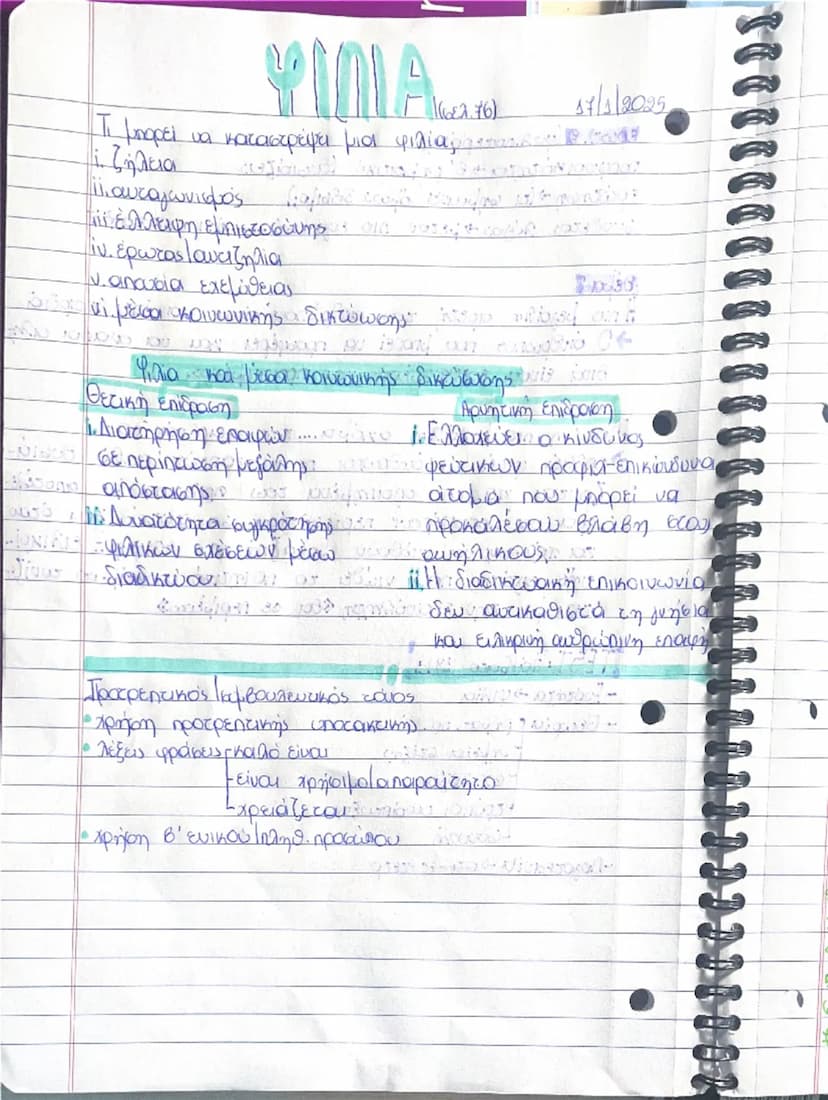 ΦΙΛΙΑ (σελ.76) 17/1/2025
Τι μπορεί να καταστρέψει μια φιλία;
i. ζήλεια
ii. ανταγωνισμός
iii. έλλειψη εμπιστοσύνης
iv. έρωτας/αντιζηλία
v. απουσία εχεμύθειας
vi. μέσα κοινωνικής δικτύωσης
Φιλία και μέσα κοινωνικής δικτύωσης
Θετική επίδραση
i. Διατήρηση επαφών
σε περίπτωση μεγάλης
απόστασης
ii. Δυνατότητα συγκρότησης
φιλικών σχέσεων μέσω
διαδικτύου.
Αρνητική επίδραση
i. Ελλοχεύει ο κίνδυνος
ψεύτικων προφίλ-επικίνδυνα
άτομα που μπορεί να
προκαλέσουν βλάβη στους
ανήλικους.
ii. Η διαδικτυακή επικοινωνία
δεν αντικαθιστά τη γνήσια
και ειλικρινή ανθρώπινη επαφή
Προτρεπτικός/συμβουλευτικός τόνος
• χρήση προτρεπτικής υποτακτικής
• λέξεις φράσεις καλό είναι
είναι χρήσιμο/απαραίτητο
χρειάζεται
• χρήση β' ενικού/πληθ. προσώπου